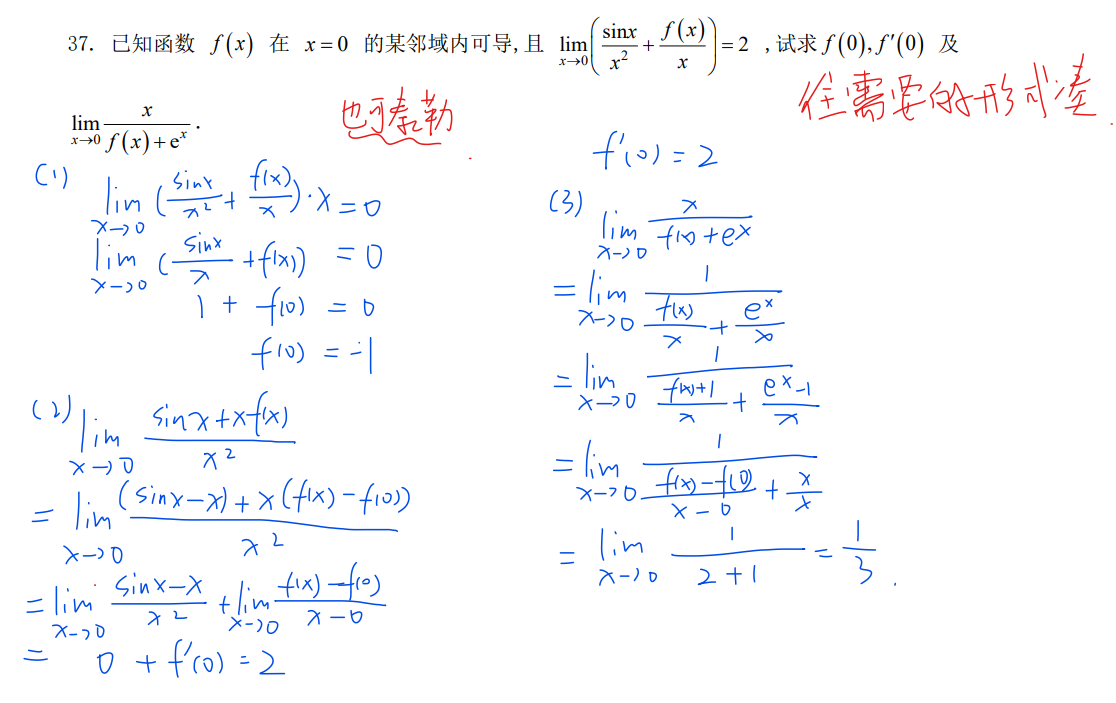 37. 已知函数 f(x) 在 x=0 的某邻域内可导,且 lim_{x→0}(sinx/x² + f(x)/x)=2 ,试求 f(0), f′(0) 及
lim_{x→0} x/(f(x)+eˣ).
也可泰勒
往需要的形式凑.
(1) lim_{x→0} (sinx/x² + f(x)/x)·x = 0
lim_{x→0} (sinx/x + f(x)) = 0
1 + f(0) = 0
f(0) = -1
(2) lim_{x→0} (sinx+xf(x))/x²
= lim_{x→0} ((sinx-x)+x(f(x)-f(0)))/x²
= lim_{x→0} (sinx-x)/x² + lim_{x→0} (f(x)-f(0))/(x-0)
= 0 + f′(0) = 2
f′(0) = 2
(3) lim_{x→0} x/(f(x)+eˣ)
= lim_{x→0} 1/(f(x)/x + eˣ/x)
= lim_{x→0} 1/((f(x)+1)/x + (eˣ-1)/x)
= lim_{x→0} 1/((f(x)-f(0))/(x-0) + x/x)
= lim_{x→0} 1/(2+1) = 1/3.